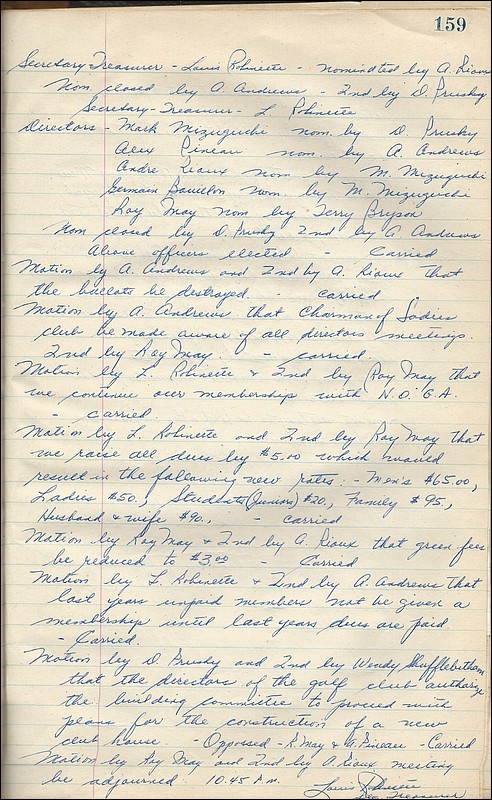 159
Secretary Treasurer - Louis Robinette - nominated by A. Rioux
Nom. closed by A. Andrews - 2nd by D. Prusky
Secretary-Treasurer - L. Robinette
Directors - Mark Mizuguchi nom. by D. Prusky
Alex Pineau nom. by A. Andrews
Andre Rioux nom by M. Mizuguchi
Germain Bouillon nom. by M. Mizuguchi
Ray May nom by Terry Bryson
Nom closed by D. Prusky 2nd by A Andrews
Above officers elected - Carried
Motion by A. Andrews and 2nd by A. Rioux that
the ballots be destroyed. - carried
Motion by A. Andrews that Chairman of Ladies
club be made aware of all directors meetings.
2nd by Ray May. - carried.
Motion by L. Robinette & 2nd by Ray May that
we continue our membership with N.O.G.A.
- carried.
Motion by L. Robinette and 2nd by Ray May that
we raise all dues by $5.00 which would
result in the following new rates: - Men's $65.00,
Ladies $50., Students (Juniors) $20., Family $95.,
Husband & wife $90., - carried
Motion by Ray May & 2nd by A. Rioux that green fees
be reduced to $3.00 - Carried
Motion by L. Robinette & 2nd by A. Andrews that
last years unpaid members not be given a
membership until last years dues are paid
- Carried.
Motion by D. Prusky and 2nd by Wendy Shufflebotham
that the directors of the golf club authorize
the building committee to proceed with
plans for the construction of a new
club house. - Opposed - R. May & A. Pineau - Carried
Motion by Ray May and 2nd by A. Rioux meeting
be adjourned. 10.45 P.m.
Louis Robinette
Sec. Treasurer